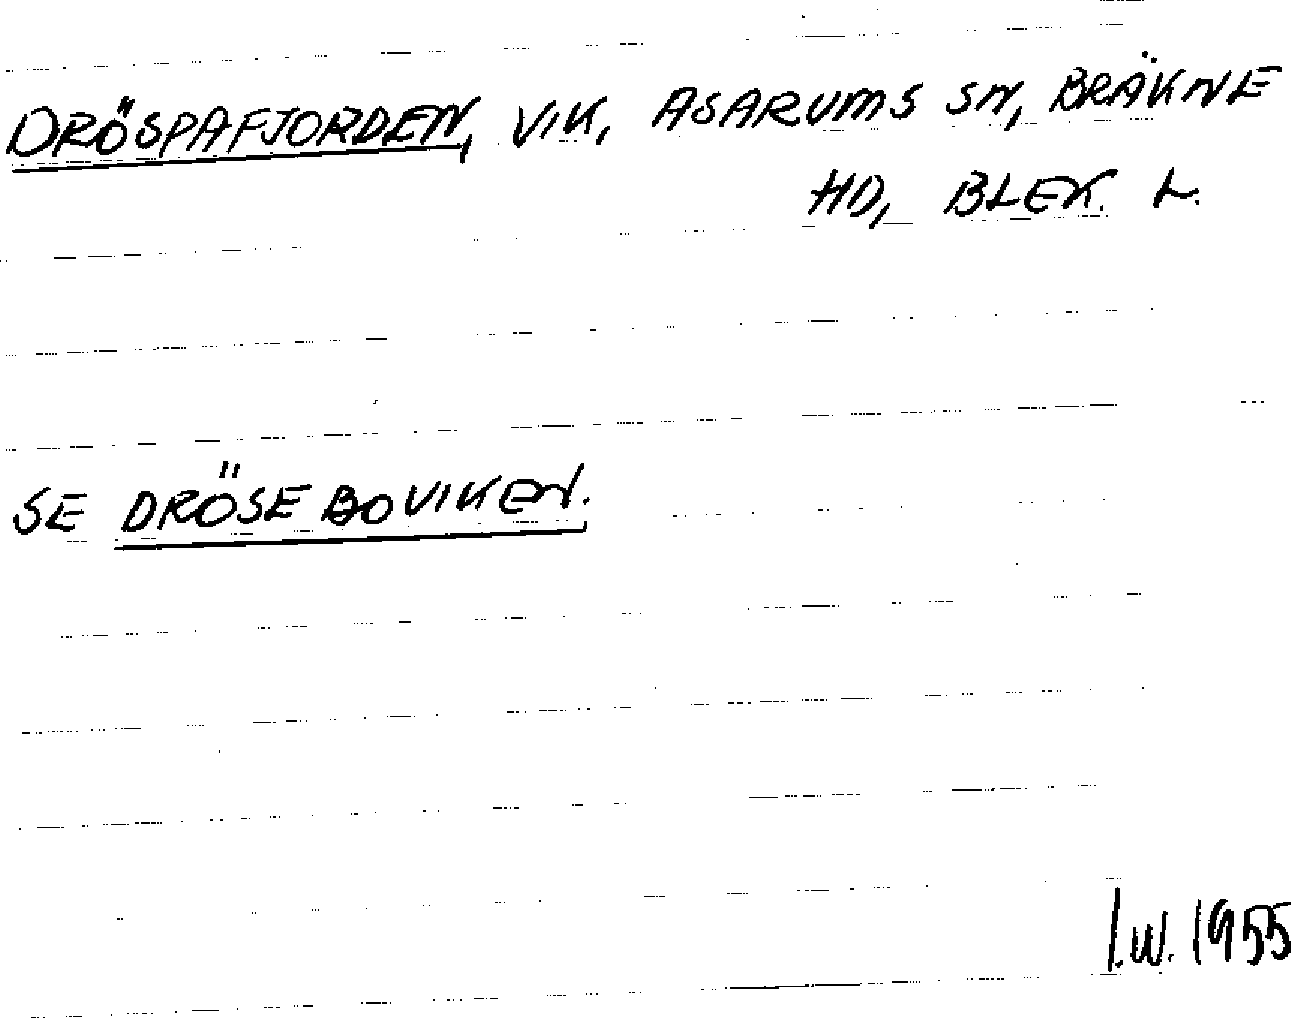 DRÖSPAFJORDEN, VIK, ASARUMS SN, BRÄKNE
HD, BLEK. L.
SE DRÖSEBOVIKEN.
I.W. 1955